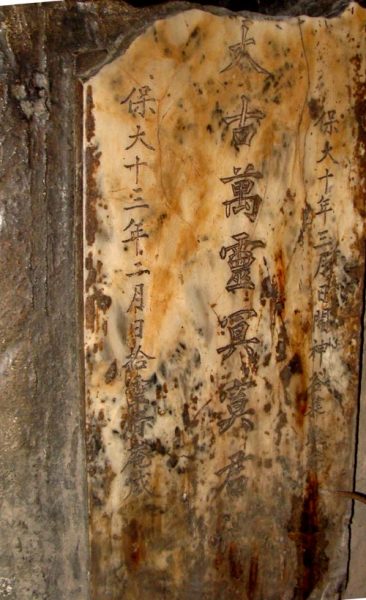 保大十年三月日開神
太古萬靈冥莫君
保大十三年二月日拾